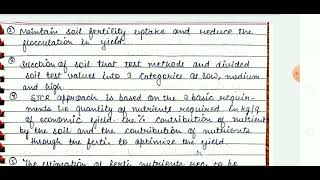 ② Maintain soil fertility uptake and reduce the
flocculation in yield.
③ Selection of soil that test methods and divided
soil test values into 3 categories as low, medium
and high.
④ STCR approach is based on the 3 basic requir-
ments ie quantity of nutrients required in kg/q
of economic yield. the % contribution of nutrient
by the soil and the contribution of nutrients
through the ferti. to optimize the yield.
The estimation of ferti. nutrients to be